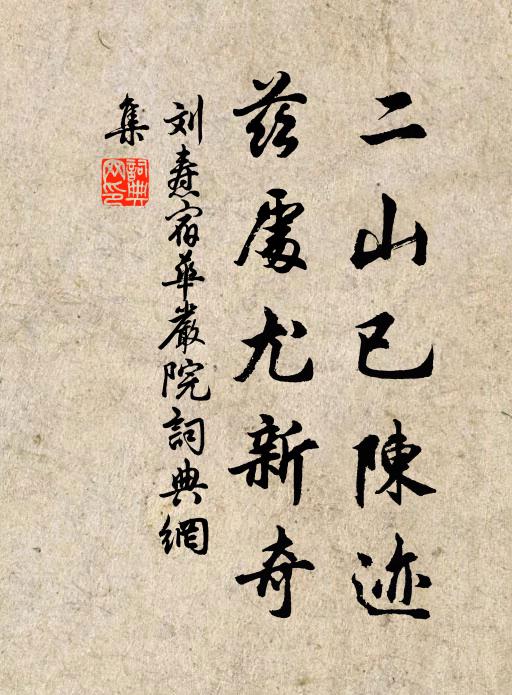 二山已陳迹
茲處尤新奇
刘焘宿華嚴院詞典網
集
詞典網印